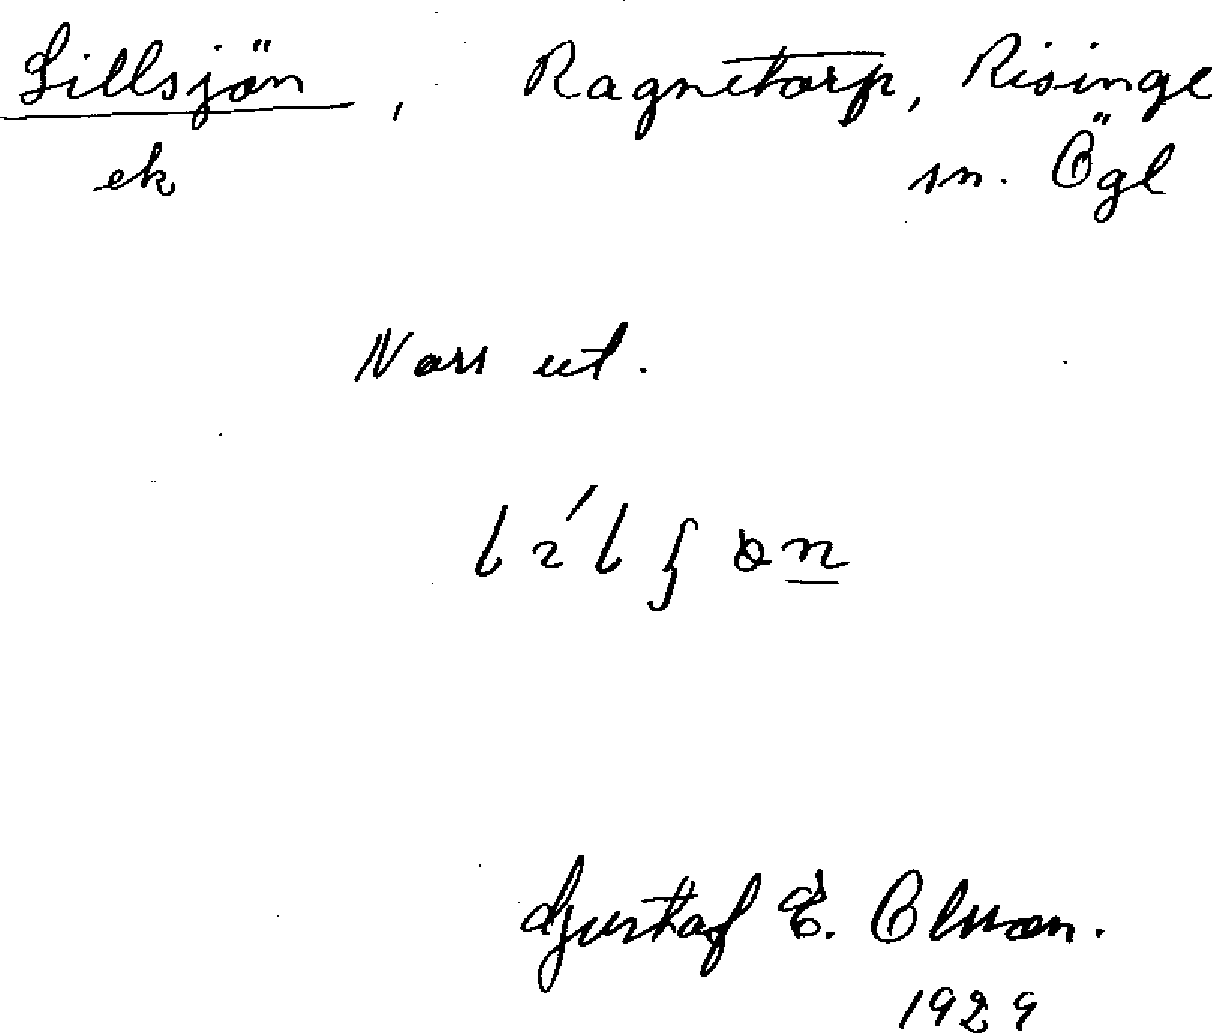 Lillsjön, Ragnetorp, Risinge
ek sn. Ögl
Norr ut.
Gustaf E. Olsson.
1929